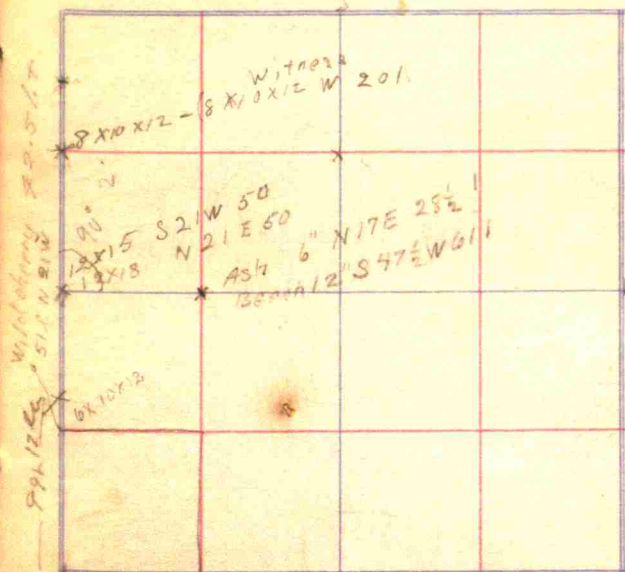 Witness
8 X 10 X 12 - 8 X 10 X 12 W 20 l.
90° 2'
12 X 15 S 21 W 50
13 X 18 N 21 E 50
Ash 6" N 17 E 28½ l
Beech 12" S 47½ W 61 l
6 X 10 X 12
Wild cherry 22.5 l.